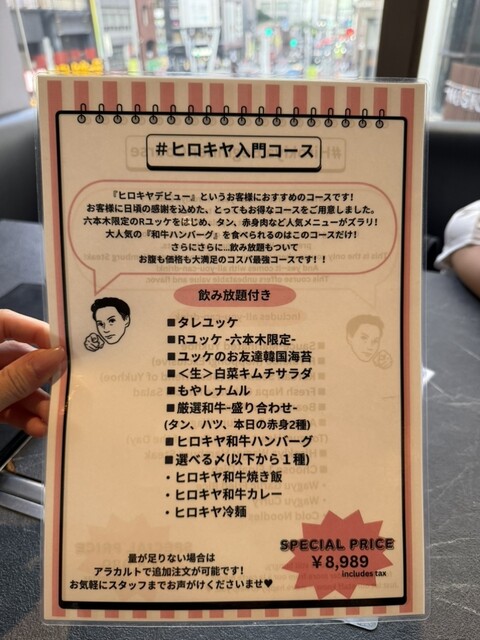 #ヒロキヤ入門コース
『ヒロキヤデビュー』というお客様におすすめのコースです!
お客様に日頃の感謝を込めた、とってもお得なコースをご用意しました。
六本木限定のRユッケをはじめ、タン、赤身肉など人気メニューがズラリ!
大人気の『和牛ハンバーグ』を食べられるのはこのコースだけ!
さらにさらに...飲み放題もついて
お腹も価格も大満足のコスパ最強コースです!!
飲み放題付き
■タレユッケ
■Rユッケ -六本木限定-
■ユッケのお友達韓国海苔
■<生>白菜キムチサラダ
■もやしナムル
■厳選和牛-盛り合わせ-
(タン、ハツ、本日の赤身2種)
■ヒロキヤ和牛ハンバーグ
■選べる〆(以下から1種)
・ヒロキヤ和牛焼き飯
・ヒロキヤ和牛カレー
・ヒロキヤ冷麺
量が足りない場合は
アラカルトで追加注文が可能です!
お気軽にスタッフまでお声がけくださいませ♥
SPECIAL PRICE
¥8,989
includes tax